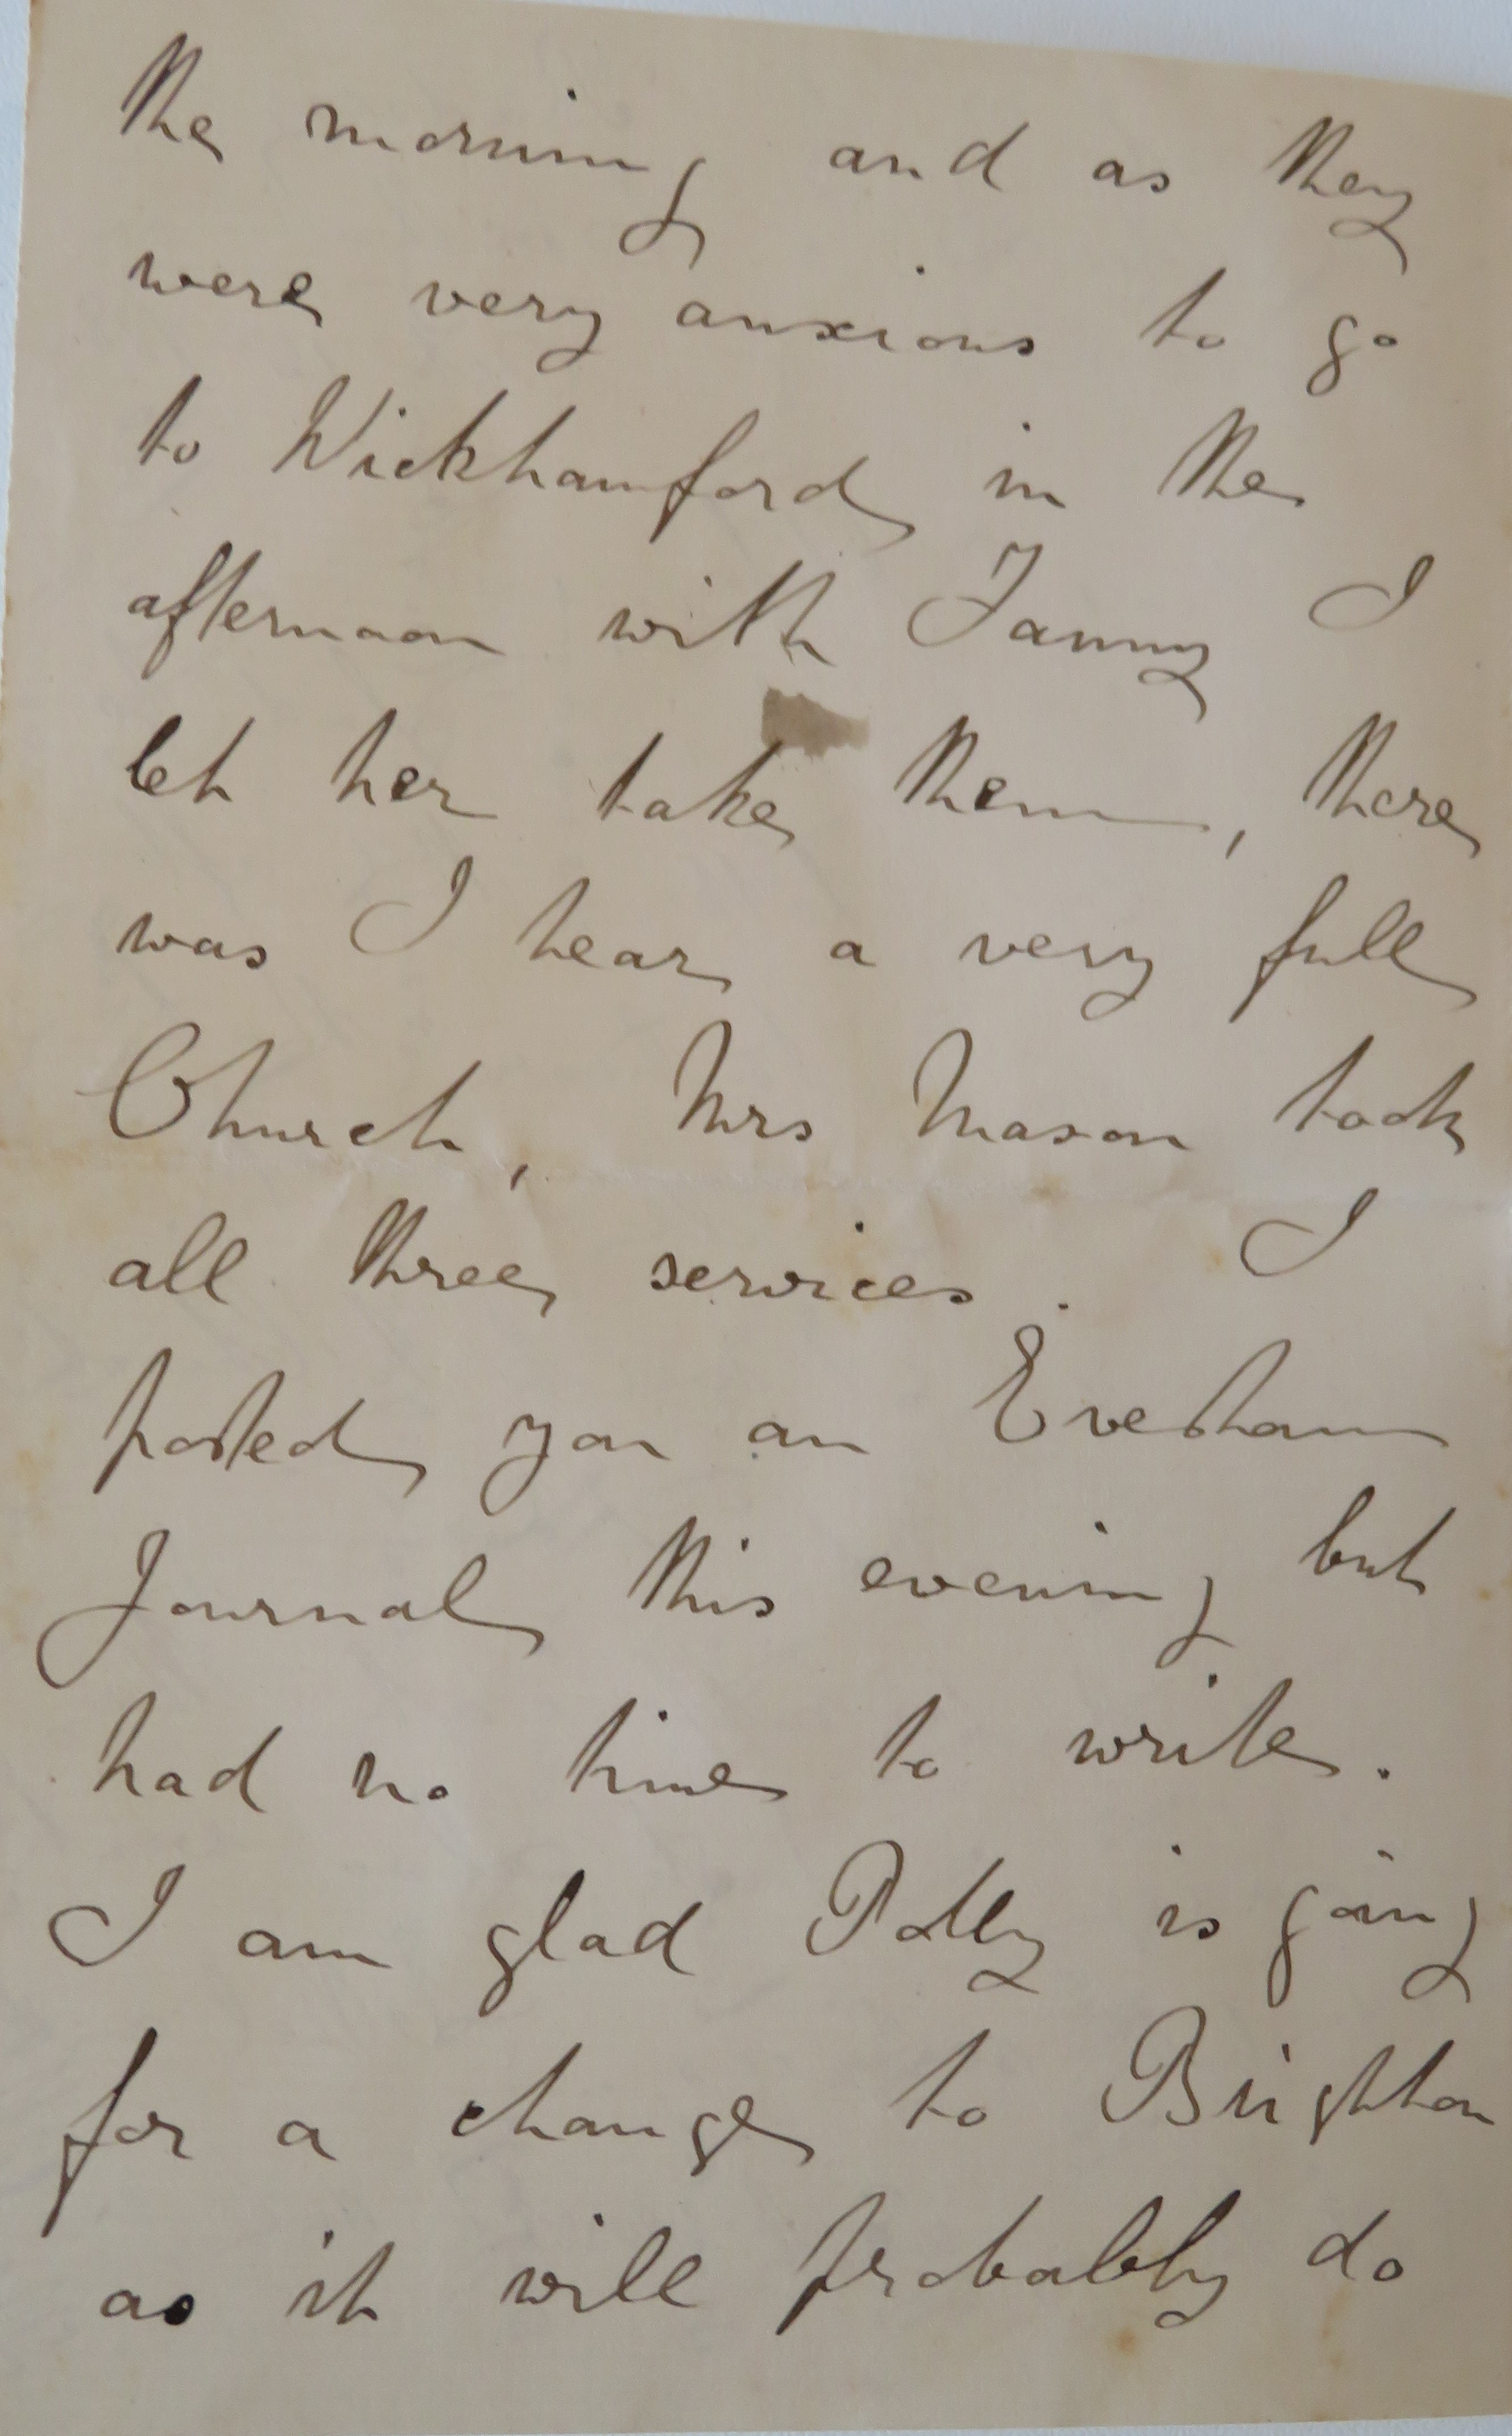 the morning and as they
were very anxious to go
to Wickhamford in the
afternoon with Fanny I
let her take them, there
was I hear a very full
Church, Mrs Mason took
all three services. I
posted you an Evesham
Journal this evening but
had no time to write.
I am glad Polly is going
for a change to Brighton
as it will probably do